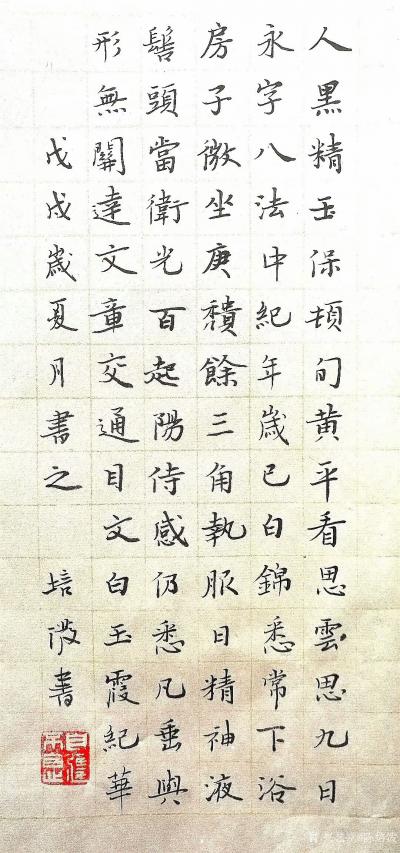 人黑精玉保頓旬黃平看思雲思九日
永字八法中紀年歲已白錦悉常下浴
房子微坐庚積餘三角執服日精神液
髻頭當衛光百起陽侍感仍悉凡垂與
形無關達文章交通目文白玉霞紀華
戊戌歲夏月書之 培微書